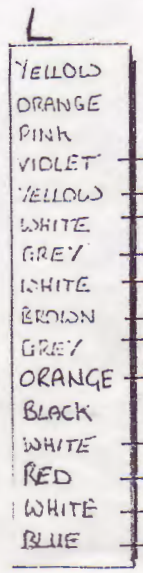 L
YELLOW
ORANGE
PINK
VIOLET
YELLOW
WHITE
GREY
WHITE
BROWN
GREY
ORANGE
BLACK
WHITE
RED
WHITE
BLUE